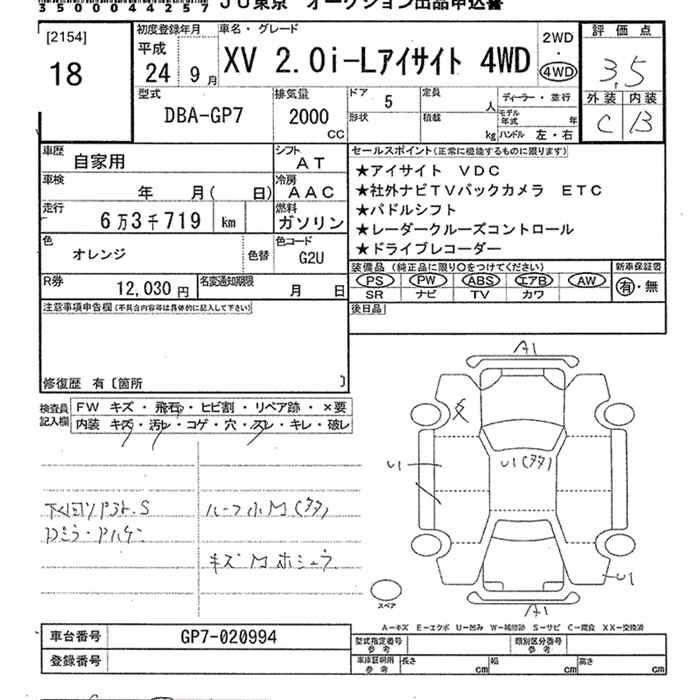 3500044257 JU東京 オークション出品申込書
[2154]
18
初度登録年月
平成
24年9月
車名・グレード
XV 2.0i-Lアイサイト 4WD
2WD
・
4WD
評価点
3.5
外装 内装
C B
型式
DBA-GP7
排気量
2000
CC
ドア 5
形状
定員 人
積載 kg
ディーラー・並行
モデル年式 年
ハンドル 左・右
車歴 自家用
シフト AT
車検 年 月( 日)
冷房 AAC
走行 6万3千719 km
燃料 ガソリン
色 オレンジ
色替
色コード
G2U
R券 12,030円
名変通知期限 月 日
セールスポイント(正常に機能するものに限ります)
★アイサイト VDC
★社外ナビTVバックカメラ ETC
★パドルシフト
★レーダークルーズコントロール
★ドライブレコーダー
装備品(純正品に限り○をつけてください)
PS PW ABS エアB AW
SR ナビ TV カワ
新車保証書
有・無
後日品
注意事項申告欄(不具合内容等は具体的に記入して下さい)
修復歴 有〔箇所 〕
検査員
記入欄
FW キズ・飛石・ヒビ割・リペア跡・×要
内装 キズ・汚レ・コゲ・穴・スレ・キレ・破レ
S
ルーフ小M(タタ)
キズM
A1
U1
U1(タタ)
U1
A1
スペア
A-キズ E-エクボ U-凹み W-補修跡 S-サビ C-腐食 XX-交換済
車台番号 GP7-020994
登録番号
型式指定番号
参考
類別区分番号
参考
車庫証明用
参考
長さ cm
幅 cm
高さ cm